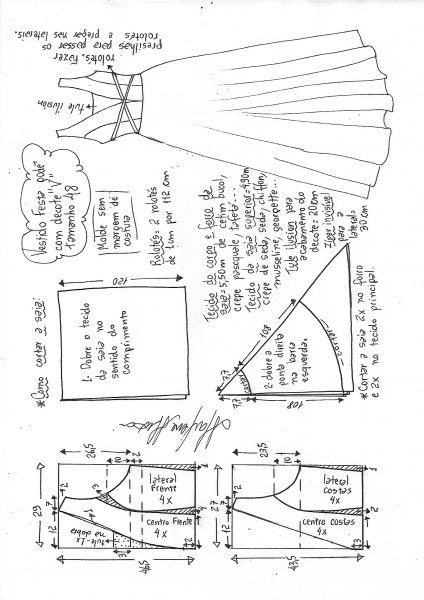 presilhas para passar os
rolotês. Fazer
rolotês e pregar nas laterais.
tule ilusión
Vestido Festa godê
com decote "V"
Tamanho 48
Molde sem
margem de
costura
Rolotês: 2 rolotês
de 1cm por 112 cm
Tecido do corpo e forro da
saia: 5,50m de cetim bucol,
crepe pasquale, tafetá...
Tecido da saia superior=4,90m
crepe de seda, seda, chiffon,
musseline, georgette...
Tule ilusion para
acabamento do
decote: 20cm
Zíper invisível
para a
lateral=
30cm
*Como cortar a saia:
120
1. Dobre o tecido
da saia no
sentido do
comprimento
7,7
108
cortar
2-dobre a
ponta direita
na barra
esquerda.
cortar
7,7
108
*Cortar a saia 2x no forro
e 2x no tecido principal.
26,5
10
2
2
29
7
12
lateral
frente
4x
centro frente
4x
tule-1x
na dobra
3
3
1
2
46,5
23,5
10
2
27
7
12
lateral
costas
4x
centro costas
4x
2
43,5